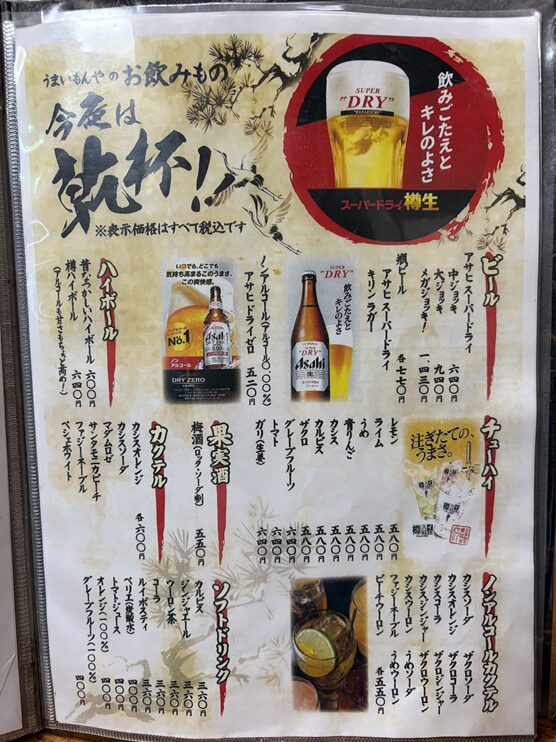 うまいもんやのお飲みもの
今夜は
乾杯!!
※表示価格はすべて税込です
SUPER
"DRY"
飲みごたえと
キレのよさ
スーパードライ 樽生
ビール
アサヒスーパードライ
中ジョッキ 六四〇円
大ジョッキ 九四〇円
メガジョッキ! 一、四三〇円
瓶ビール
アサヒスーパードライ
キリンラガー 各七七〇円
SUPER
"DRY"
飲みごたえと
キレのよさ
Asahi
生
ノンアルコール(アルコール〇.〇〇%)
アサヒドライゼロ 五二〇円
いつでも、どこでも
気持ち高まるこのうまさ、
この爽快感。
No.1
ノン
アルコール
Asahi
0.00
DRY ZERO
ハイボール
昔なつかしいハイボール 六〇〇円
樽ハイボール 六四〇円
(アルコールも甘さもちょっと高め!)
チューハイ
注ぎたての、
うまさ。
レモン 五八〇円
ライム 五八〇円
うめ 五八〇円
青りんご 五八〇円
カシス 五八〇円
カルピス 五八〇円
ザクロ 五八〇円
グレープフルーツ 六四〇円
トマト 六四〇円
ガリ(生姜) 六四〇円
果実酒
梅酒(ロック・ソーダ割) 五五〇円
カクテル
カシスオレンジ
カシスソーダ
マグロロゼ
サンタモニカピーチ
ファジーネーブル
ペシェホワイト
各六〇〇円
ノンアルコールカクテル
カシスソーダ ザクロソーダ
カシスオレンジ ザクロオレンジ
カシスコーラ ザクロコーラ
カシスジンジャー ザクロジンジャー
カシスウーロン ザクロウーロン
ファジーネーブル うめソーダ
ピーチウーロン うめウーロン
各五五〇円
ソフトドリンク
カルピス 三六〇円
ジンジャエール 三六〇円
ウーロン茶 三六〇円
コーラ 三六〇円
ルイボスティ 三六〇円
ペリエ(炭酸水) 四〇〇円
トマトジュース 四〇〇円
オレンジ(一〇〇%) 四〇〇円
グレープフルーツ(一〇〇%) 四〇〇円